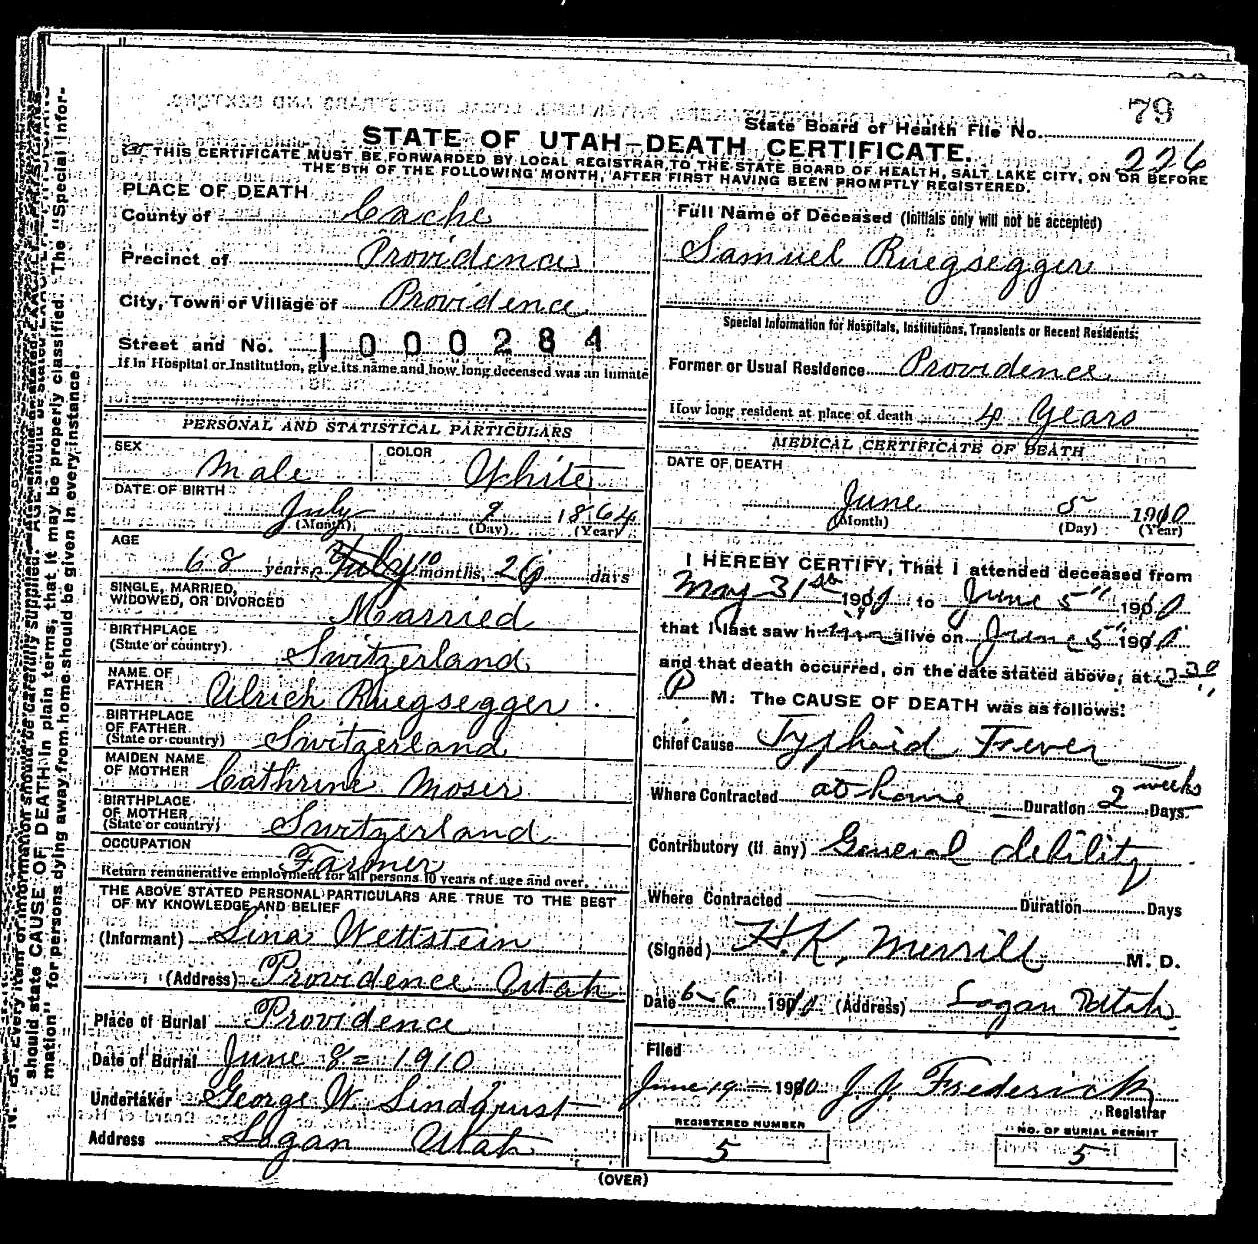 79
State Board of Health File No.
STATE OF UTAH—DEATH CERTIFICATE.
226
THIS CERTIFICATE MUST BE FORWARDED BY LOCAL REGISTRAR TO THE STATE BOARD OF HEALTH, SALT LAKE CITY, ON OR BEFORE
THE 5TH OF THE FOLLOWING MONTH, AFTER FIRST HAVING BEEN PROMPTLY REGISTERED.
PLACE OF DEATH
County of Cache
Precinct of Providence
City, Town or Village of Providence
Street and No. 1000284
If in Hospital or Institution, give its name and how long deceased was an inmate
PERSONAL AND STATISTICAL PARTICULARS
SEX Male COLOR White
DATE OF BIRTH
July 9 1864
(Month) (Day) (Year)
AGE
68 years, July 10 months, 26 days
SINGLE, MARRIED,
WIDOWED, OR DIVORCED Married
BIRTHPLACE
(State or country) Switzerland
NAME OF
FATHER Ulrich Ruegsegger
BIRTHPLACE
OF FATHER
(State or country) Switzerland
MAIDEN NAME
OF MOTHER Cathrine Moser
BIRTHPLACE
OF MOTHER
(State or country) Switzerland
OCCUPATION Farmer
Return remunerative employment for all persons 10 years of age and over.
THE ABOVE STATED PERSONAL PARTICULARS ARE TRUE TO THE BEST
OF MY KNOWLEDGE AND BELIEF
(Informant) Lina Wettstein
(Address) Providence Utah
Place of Burial Providence
Date of Burial June 8= 1910
Undertaker George W Lindquist
Address Logan Utah
Full Name of Deceased (Initials only will not be accepted)
Samuel Ruegsegger
Special Information for Hospitals, Institutions, Transients or Recent Residents:
Former or Usual Residence Providence
How long resident at place of death 4 Years
MEDICAL CERTIFICATE OF DEATH
DATE OF DEATH
June 5 1910
(Month) (Day) (Year)
I HEREBY CERTIFY, That I attended deceased from
May 31st 1910 to June 5" 1910
that I last saw him alive on June 5" 1910
and that death occurred, on the date stated above, at
P M. The CAUSE OF DEATH was as follows:
Chief Cause Typhoid Fever
Where Contracted at home Duration 2 weeks Days.
Contributory (if any) General debility
Where Contracted Duration Days
(Signed) H.K. Merrill M. D.
Date 6-6 1910 (Address) Logan Utah
Filed
June 19 — 1910 J.J. Frederick
Registrar
REGISTERED NUMBER
5
NO. OF BURIAL PERMIT
5
(OVER)
should state CAUSE OF DEATH in plain terms, that it may be properly classified. The "Special Infor-
mation" for persons dying away from home should be given in every instance.